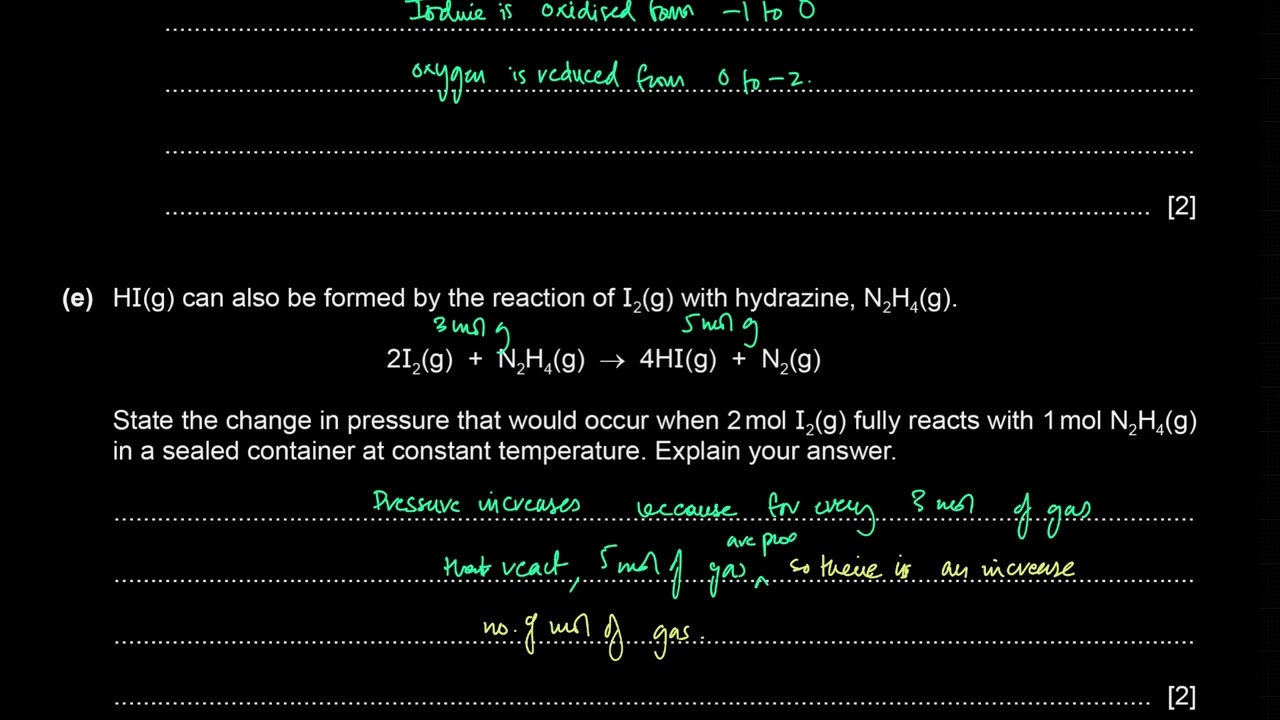 Iodine is oxidised from -1 to 0
oxygen is reduced from 0 to -2.
[2]
(e) HI(g) can also be formed by the reaction of I₂(g) with hydrazine, N₂H₄(g).
3 mol g 5 mol g
2I₂(g) + N₂H₄(g) → 4HI(g) + N₂(g)
State the change in pressure that would occur when 2 mol I₂(g) fully reacts with 1 mol N₂H₄(g)
in a sealed container at constant temperature. Explain your answer.
Pressure increases because for every 3 mol of gas
are proo
that react, 5 mol of gas ^ so there is an increase
no. of mol of gas.
[2]